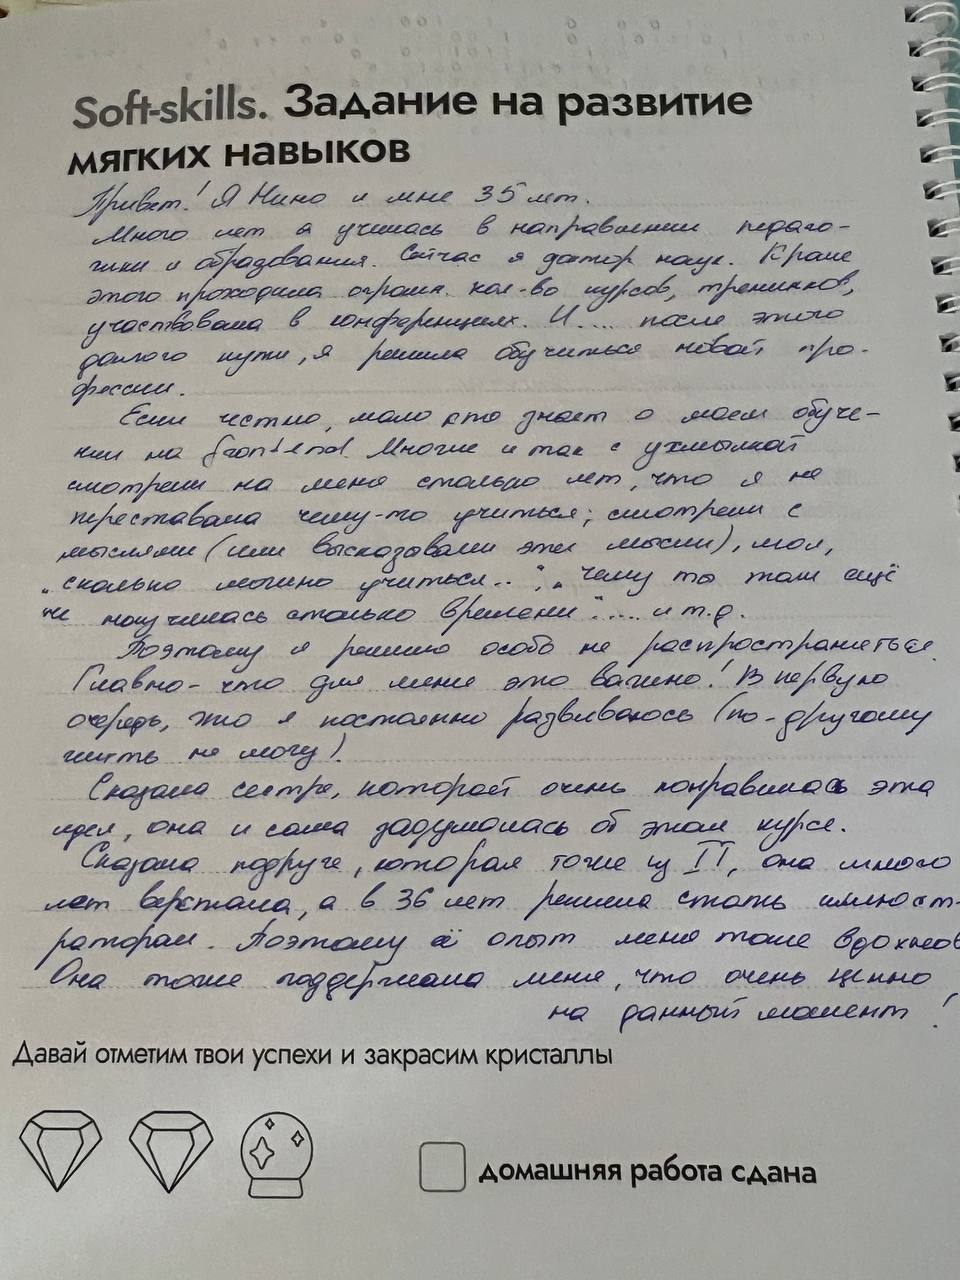 Soft-skills. Задание на развитие
мягких навыков
Привет! Я Нино и мне 35 лет.
Много лет я училась в направлении педаго-
гики и образования. Сейчас я доктор наук. Кроме
этого проходила огромн. кол-во курсов, тренингов,
участвовала в конференциях. И.... после этого
долгого пути, я решила обучиться новой про-
фессии.
Если честно, мало кто знает о моем обуче-
нии на frontend. Многие и так с ухмылкой
смотрели на меня столько лет, что я не
переставала чему-то учиться; смотрели с
мыслями (или высказывали эти мысли), мол,
„сколько можно учиться..", „чему ты там ещё
не научилась столько времени".... и т.д.
Поэтому я решила особо не распространяться.
Главно - что для меня это важно! В первую
очередь, что я постоянно развиваюсь (по-другому
жить не могу).
Сказала сестре, которой очень понравилась эта
идея, она и сама задумалась об этом курсе.
Сказала подруге, которая тоже из IT, она много
лет верстала, а в 36 лет решила стать иллюст-
ратором. Поэтому её опыт меня тоже вдохнов
Она тоже поддержала меня, что очень ценно
на данный момент!
Давай отметим твои успехи и закрасим кристаллы
домашняя работа сдана